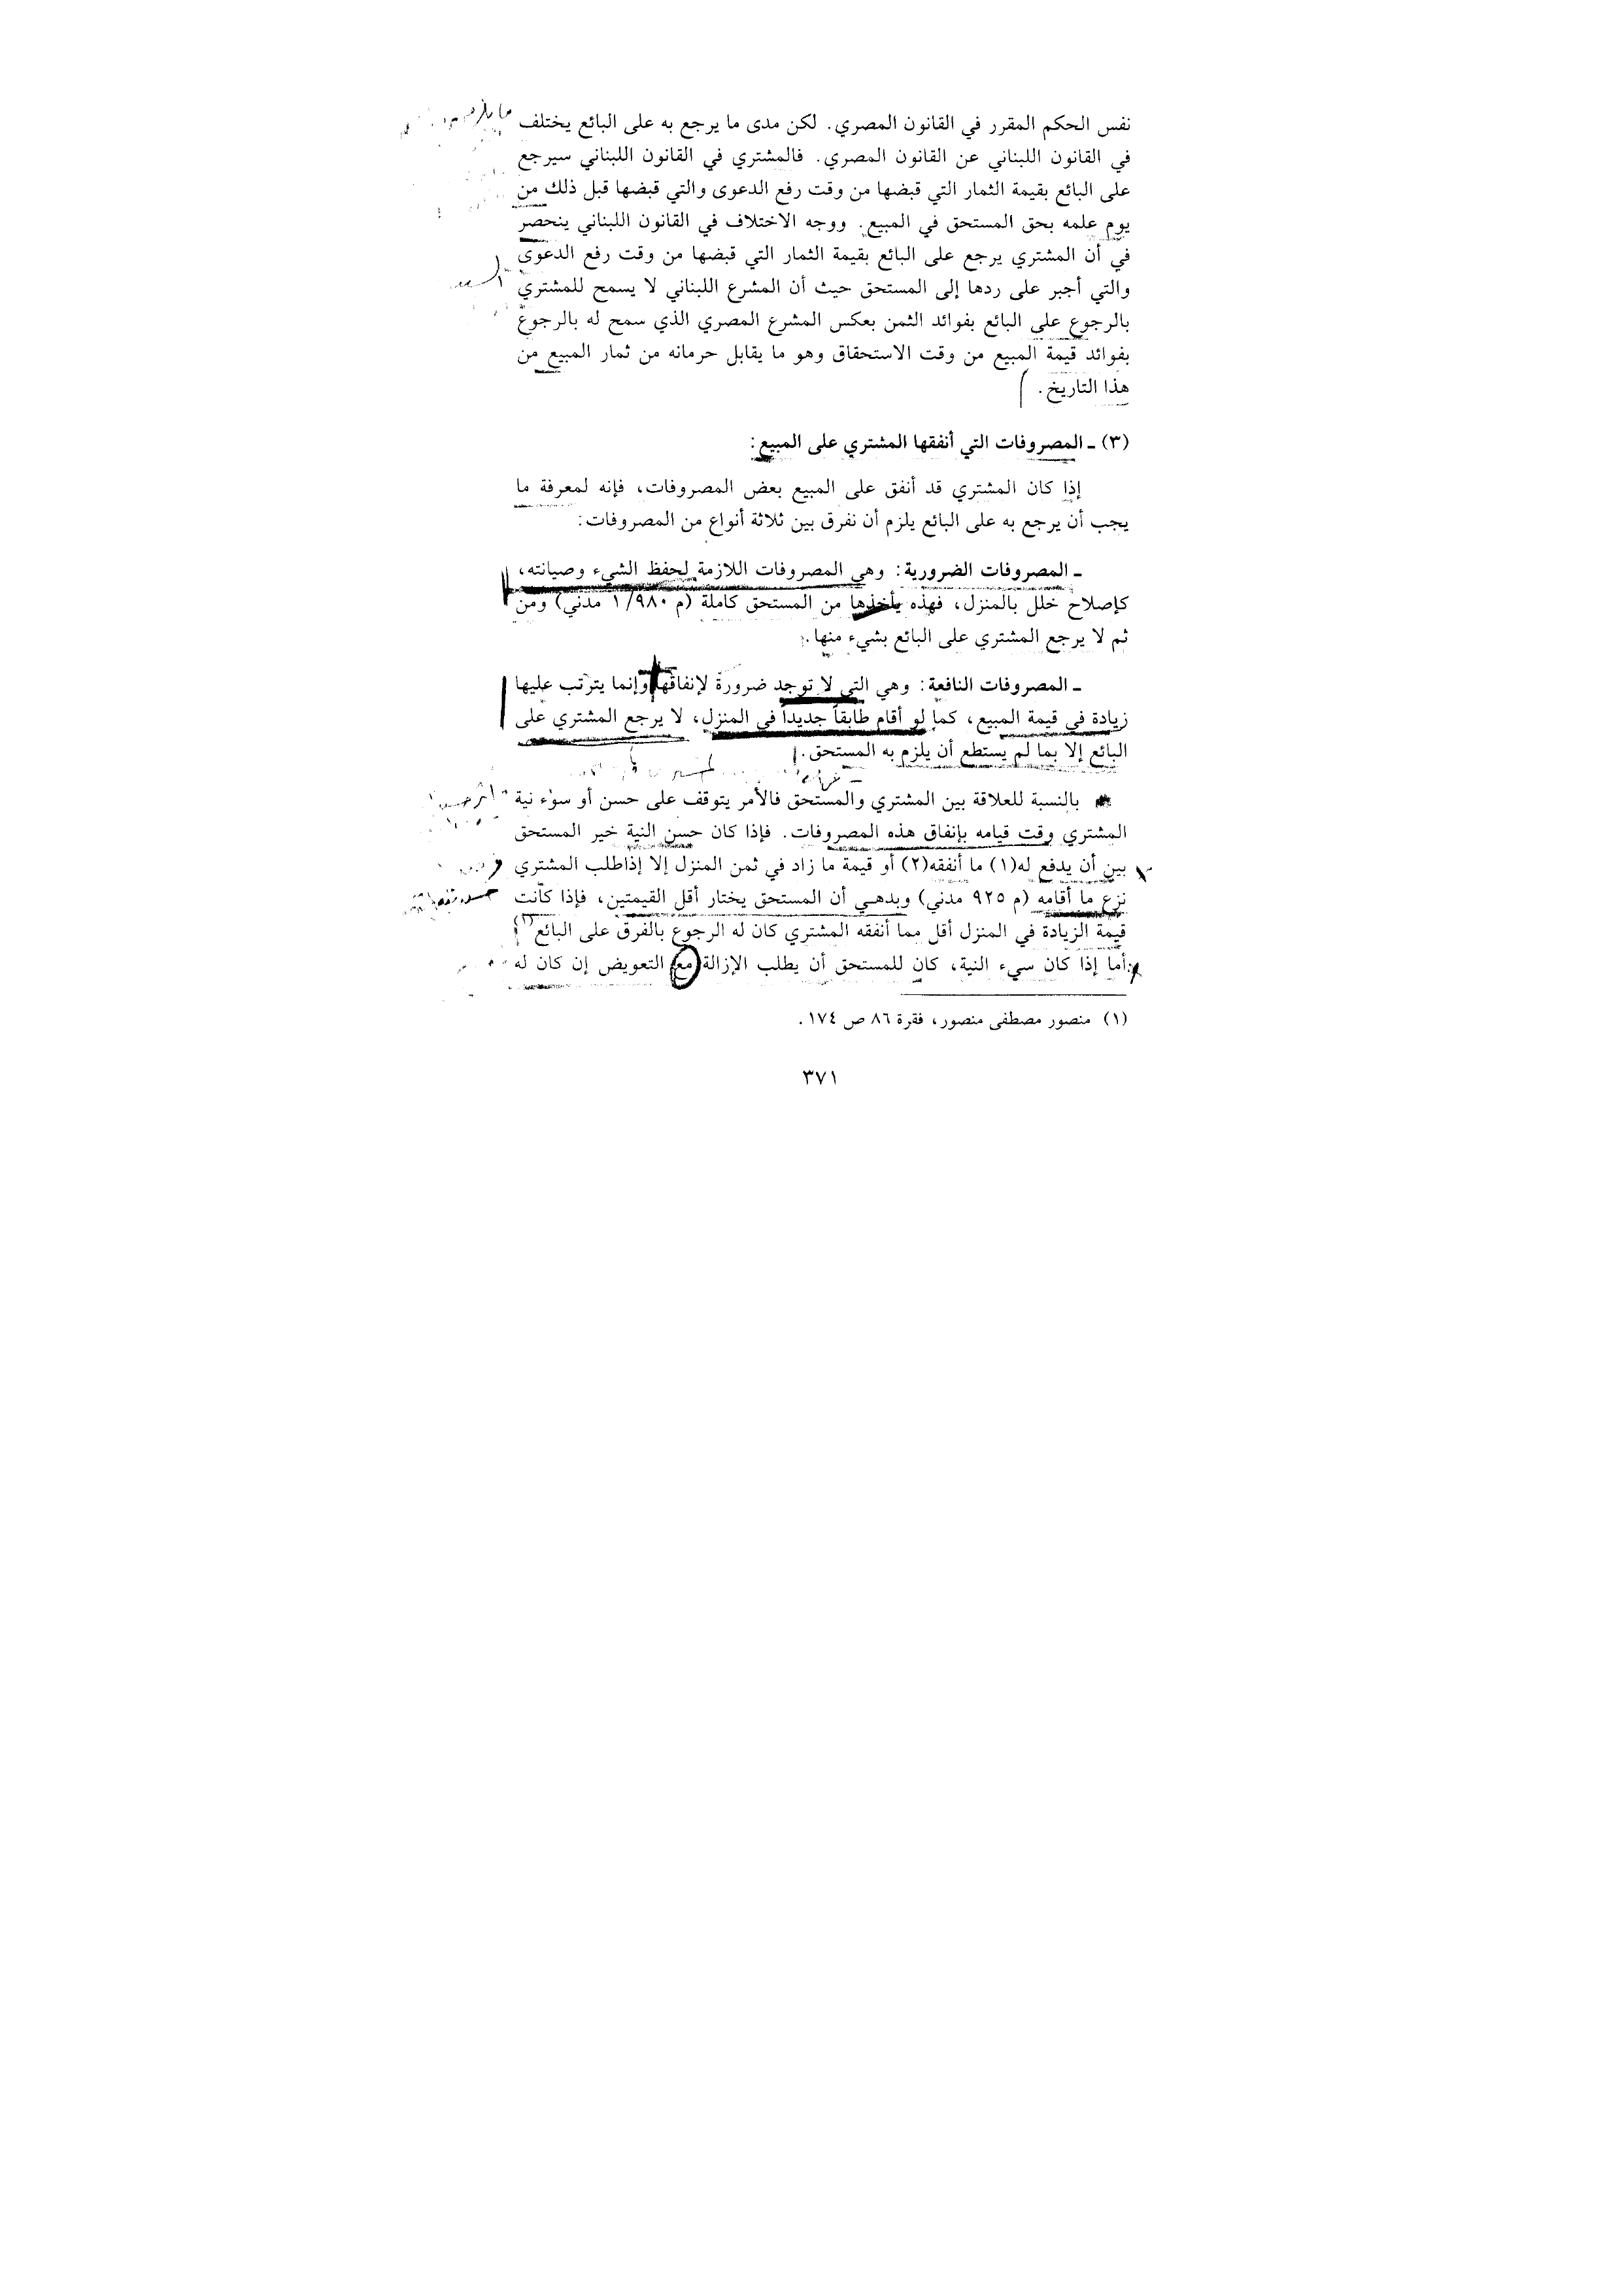 نفس الحكم المقرر في القانون المصري. لكن مدى ما يرجع به على البائع يختلف
في القانون اللبناني عن القانون المصري. فالمشتري في القانون اللبناني سيرجع
على البائع بقيمة الثمار التي قبضها من وقت رفع الدعوى والتي قبضها قبل ذلك من
يوم علمه بحق المستحق في المبيع. ووجه الاختلاف في القانون اللبناني ينحصر
في أن المشتري يرجع على البائع بقيمة الثمار التي قبضها من وقت رفع الدعوى
والتي أجبر على ردها إلى المستحق حيث أن المشرع اللبناني لا يسمح للمشتري
بالرجوع على البائع بفوائد الثمن بعكس المشرع المصري الذي سمح له بالرجوع
بفوائد قيمة المبيع من وقت الاستحقاق وهو ما يقابل حرمانه من ثمار المبيع من
هذا التاريخ.
(٣) ـ المصروفات التي أنفقها المشتري على المبيع:
إذا كان المشتري قد أنفق على المبيع بعض المصروفات، فإنه لمعرفة ما
يجب أن يرجع به على البائع يلزم أن نفرق بين ثلاثة أنواع من المصروفات:
ـ المصروفات الضرورية: وهي المصروفات اللازمة لحفظ الشيء وصيانته،
كإصلاح خلل بالمنزل، فهذه يأخذها من المستحق كاملة (م ١/٩٨٠ مدني) ومن
ثم لا يرجع المشتري على البائع بشيء منها.
ـ المصروفات النافعة: وهي التي لا توجد ضرورة لإنفاقها وإنما يترتب عليها
زيادة في قيمة المبيع، كما لو أقام طابقاً جديداً في المنزل، لا يرجع المشتري على
البائع إلا بما لم يستطع أن يلزم به المستحق.
بالنسبة للعلاقة بين المشتري والمستحق فالأمر يتوقف على حسن أو سوء نية
المشتري وقت قيامه بإنفاق هذه المصروفات. فإذا كان حسن النية خير المستحق
بين أن يدفع له(١) ما أنفقه(٢) أو قيمة ما زاد في ثمن المنزل إلا إذاطلب المشتري
نزع ما أقامه (م ٩٢٥ مدني) وبدهي أن المستحق يختار أقل القيمتين، فإذا كانت
قيمة الزيادة في المنزل أقل مما أنفقه المشتري كان له الرجوع بالفرق على البائع(١)
أما إذا كان سيء النية، كان للمستحق أن يطلب الإزالة مع التعويض إن كان له
(١) منصور مصطفى منصور، فقرة ٨٦ ص ١٧٤.
٣٧١